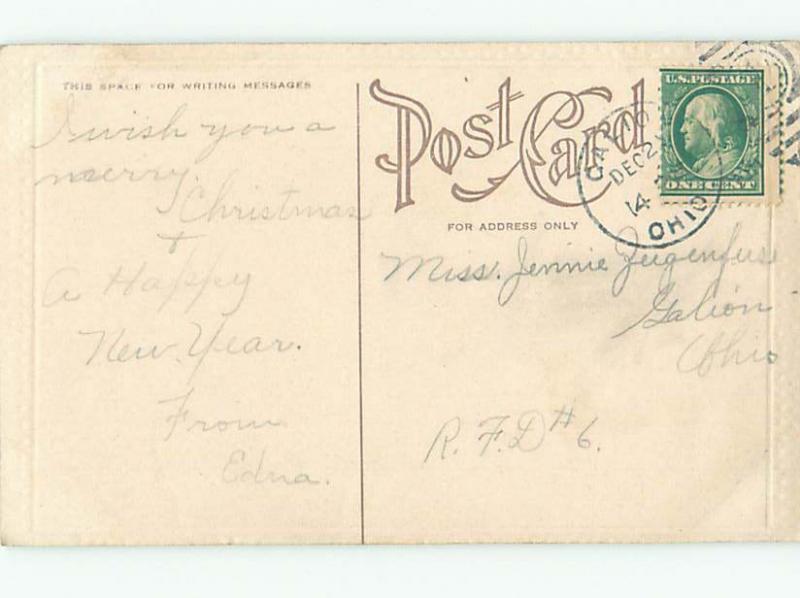 THIS SPACE FOR WRITING MESSAGES
I wish you a
merry.
Christmas
+
a Happy
New. Year.
From
Edna.
Post Card
FOR ADDRESS ONLY
U.S. POSTAGE
ONE CENT
DEC 2
14
OHIO
Miss. Jennie
Galion
Ohio
R. F. D #6.